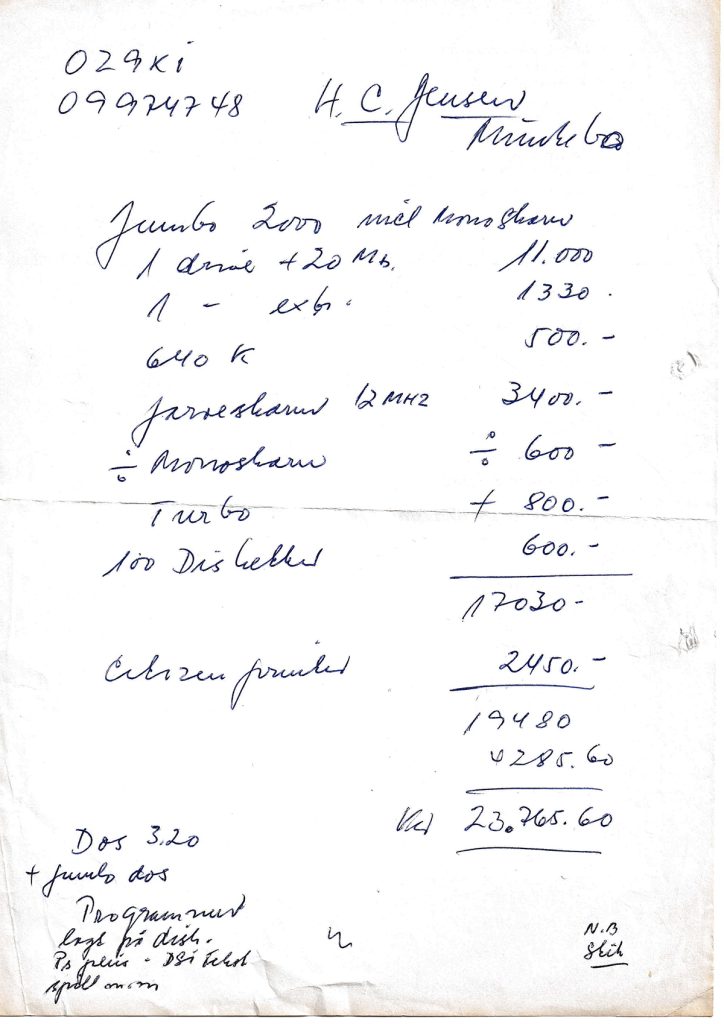 OZ9KI
09974748
H. C. Jensen
Munkebo
Jumbo 2000 med Monoskærm
1 drive + 20 Mb. 11.000
1 - extr. 1330.
640 K 500.-
farveskærm 12 MHZ 3400.-
÷ Monoskærm ÷ 600 -
Turbo + 800.-
100 Disketter 600.-
17030-
Citizen printer 2450.-
19480
4285.60
Kr 23.765.60
Dos 3.20
+ Jumbo dos
Programmer
lagt på disk.
DSI tekst
spil m.m
N.B